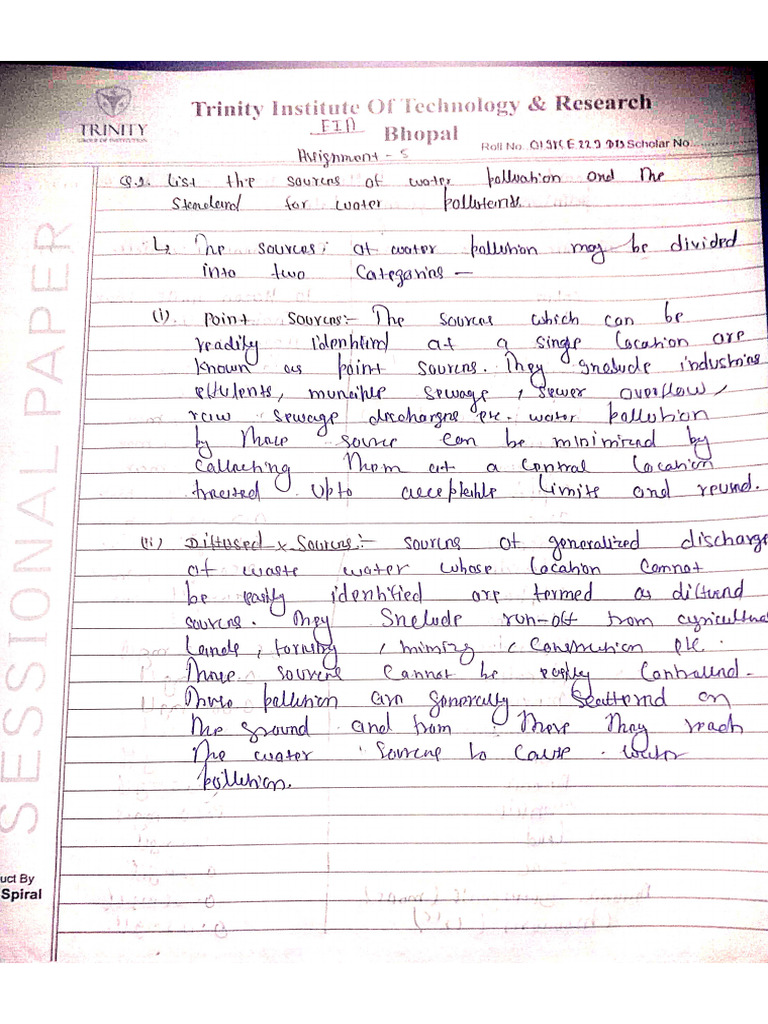 TRINITY
GROUP OF INSTITUTION
Trinity Institute Of Technology & Research
EIA
Bhopal
Roll No. Scholar No
Assignment - 5
Q.1. List the sources of water pollution and the
Standard for water pollutents.
↳ The sources of water pollution may be divided
into two Categories —
(i) Point Sources:- The sources which can be
readily identified at a single location are
known as point sources. They include industries
effulents, municiple sewage, sewer overflow,
raw sewage discharges etc. water pollution
by these source can be minimized by
Collecting them at a central location
treated upto acceptable limits and reused.
(ii) Diffused x Sources:- sources of generalized discharge
of waste water whose location cannot
be easily identified are termed as diffused
sources. They Include run-off from agricultural
Lands, farming, mining, construction etc.
These sources cannot be easily Controlled.
These pollution are generally Scattered on
the ground and from there they reach
the water source to cause water
pollution.
SESSIONAL PAPER
uct By
Spiral